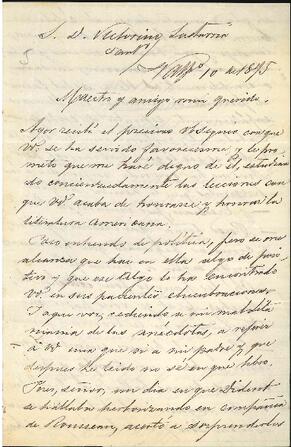 S. D. Victorino Lastarria
Santgo
Valpo 10 de 1875
Maestro y amigo mui querido:
Ayer recibí el precioso obsequio con que
Ud. se ha servido favorecerme y le pro-
meto que me haré digno de él, estudian-
do concienzudamente las lecciones con
que Ud. acaba de honrarse y honrar la
literatura americana.
Poco entiendo de política, pero se me
alcanza que hai en ella algo de posi-
tivo y que ese algo lo ha encontrado
Ud. en sus pacientes
I aquí voi, cediendo a mi maldita
manía de las anécdotas, a referir
a Ud. una que oí a mi padre y que
despues he leido no sé en que libro.
Pues, señor, un dia en que Diderot
se hallaba herborizando en compañía
de Rousseau, acertó a sorprenderlos